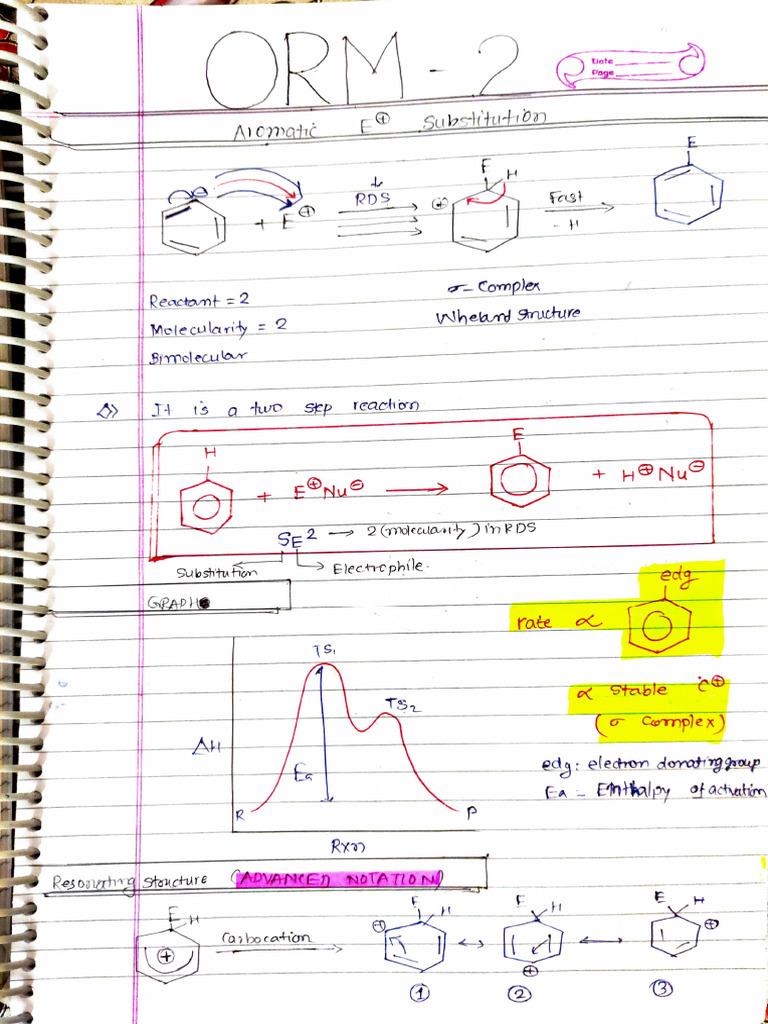 ORM - 2
Date
Page
Aromatic E⊕ Substitution
+ E⊕
RDS
E H
⊕
Fast
- H
E
σ- Complex
Wheland structure
Reactant = 2
Molecularity = 2
Bimolecular
It is a two step reaction
H
+ E⊕Nu⊖
E
+ H⊕Nu⊖
SE2 → 2 (molecularity) in RDS
Substitution
Electrophile.
GRAPH
edg
rate ∝
∝ stable C⊕
(σ complex)
edg: electron donating group
Ea - Enthalpy of activation
TS1
TS2
ΔH
Ea
R
P
Rxn
Resonating structure (ADVANCED NOTATION)
E H
⊕
Carbocation
E H
⊕
①
E H
⊕
②
E H
⊕
③